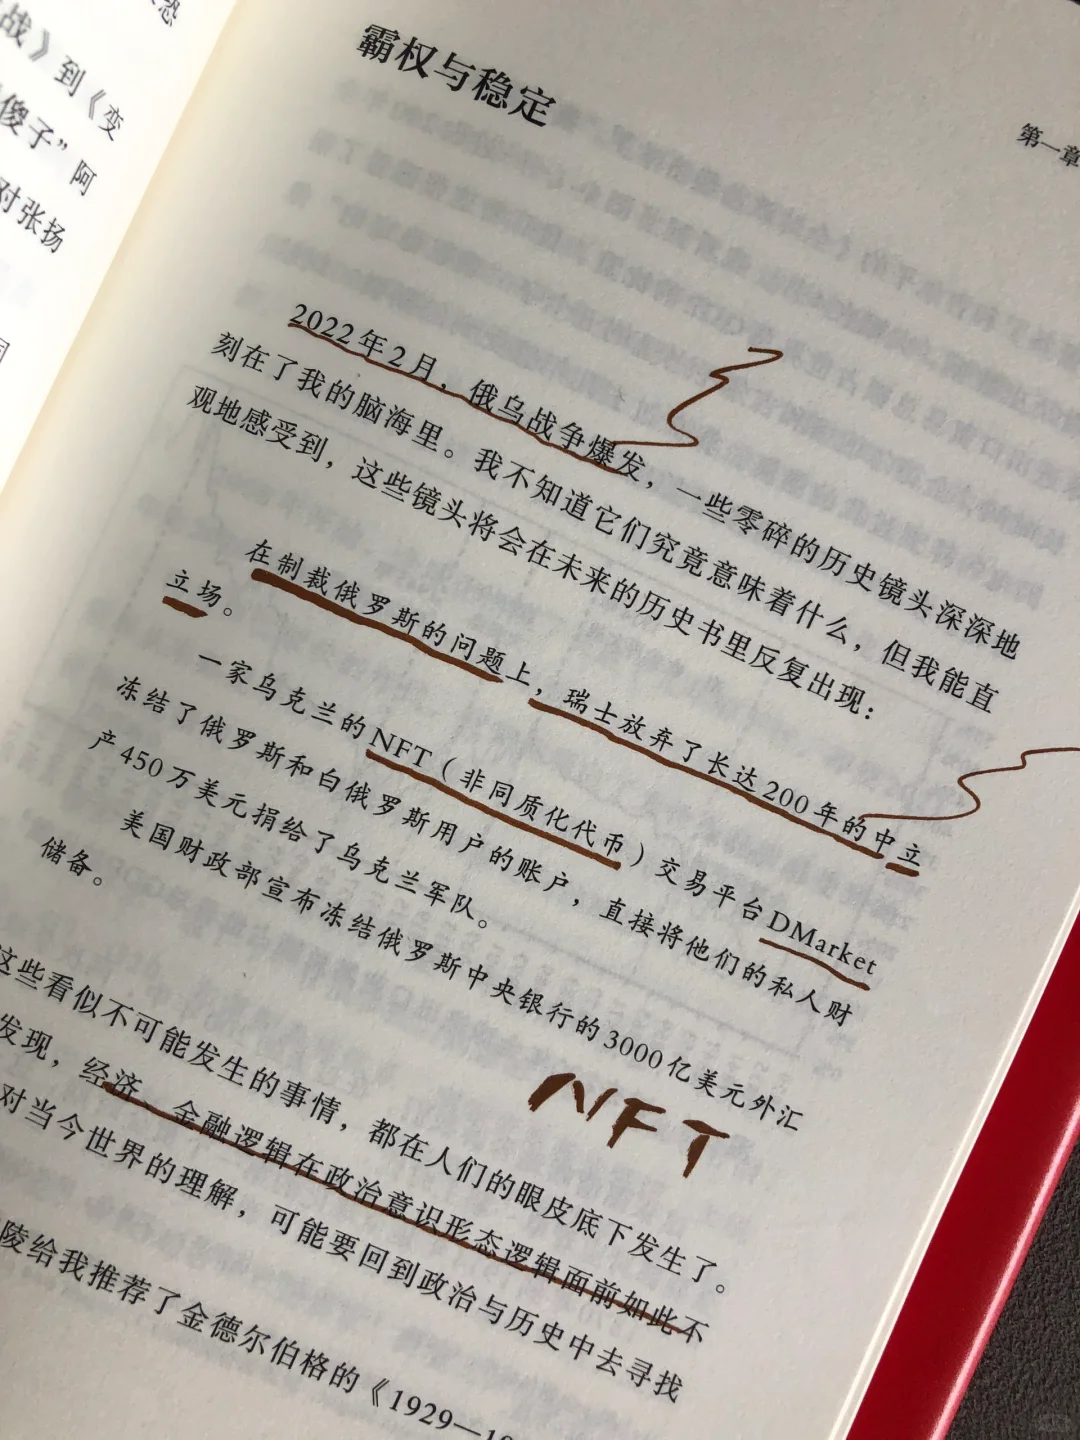 战》到《变
傻子”阿
对张扬
霸权与稳定
第一章
2022年2月，俄乌战争爆发，一些零碎的历史镜头深深地
刻在了我的脑海里。我不知道它们究竟意味着什么，但我能直
观地感受到，这些镜头将会在未来的历史书里反复出现：
在制裁俄罗斯的问题上，瑞士放弃了长达200年的中立
立场。
一家乌克兰的NFT（非同质化代币）交易平台DMarket
冻结了俄罗斯和白俄罗斯用户的账户，直接将他们的私人财
产450万美元捐给了乌克兰军队。
美国财政部宣布冻结俄罗斯中央银行的3000亿美元外汇
储备。
NFT
这些看似不可能发生的事情，都在人们的眼皮底下发生了。
发现，经济、金融逻辑在政治意识形态逻辑面前如此不
对当今世界的理解，可能要回到政治与历史中去寻找
陵给我推荐了金德尔伯格的《1929—19